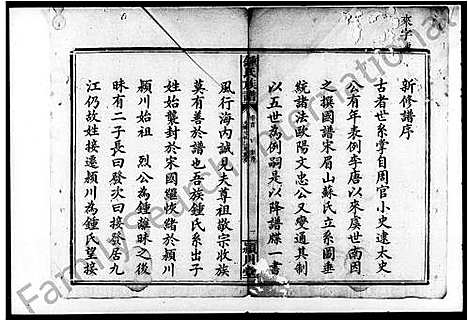 來字
新修譜序
古者世系掌自周官小史逮太史
公有年表例李唐以來虞世南因
之撰國譜宋眉山蘇氏立系圖垂
統諸法歐陽文忠公又變通其制
以五世為例嗣是以降譜牒一書
鍾氏族譜
潁川堂
風行海內誠見夫尊祖敬宗收族
莫有善於譜也吾族鍾氏系出子
姓始襲封於宋國繼恢緒於潁川
潁川始祖 烈公為鍾離昧之後
昧有二子長曰發次曰接發居九
江仍故姓接遷潁川為鍾氏望接
FamilySearch International